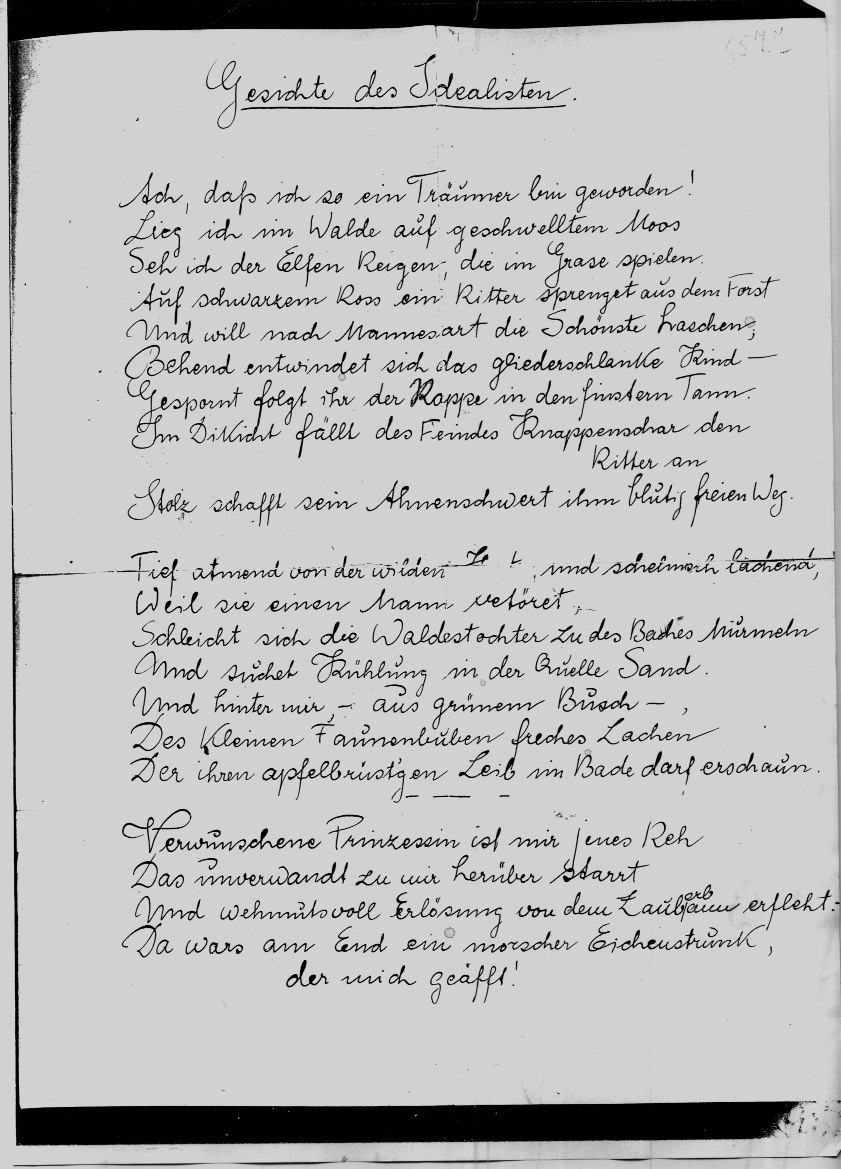 Gesichte des Idealisten.
Ach, daß ich so ein Träumer bin geworden!
Lieg ich im Walde auf geschwelltem Moos
Seh ich der Elfen Reigen, die im Grase spielen.
Auf schwarzem Ross ein Ritter sprenget aus dem Forst
Und will nach Mannesart die Schönste haschen;
Behend entwindet sich das gliederschlanke Kind —
Gespornt folgt ihr der Rappe in den finstern Tann.
Im Dikicht fällt des Feindes Knappenschar den
Ritter an
Stolz schafft sein Ahnenschwert ihm blutig freien Weg.
Tief atmend von der wilden , und schelmisch lächend,
Weil sie einen Mann vetöret,
Schleicht sich die Waldestochter zu des Baches Murmeln
Und suchet Kühlung in der Quelle Sand.
Und hinter mir, – aus grünem Busch – ,
Des kleinen Faunenbuben freches Lachen
Der ihren apfelbrüst'gen Leib im Bade darf erschaun.
Verwunschene Prinzessin ist mir jenes Reh
Das unverwandt zu mir herüber starrt
Und wehmutsvoll Erlösung von dem erfleht:
Da wars am End ein morscher Eichenstrunk,
der mich geäfft!